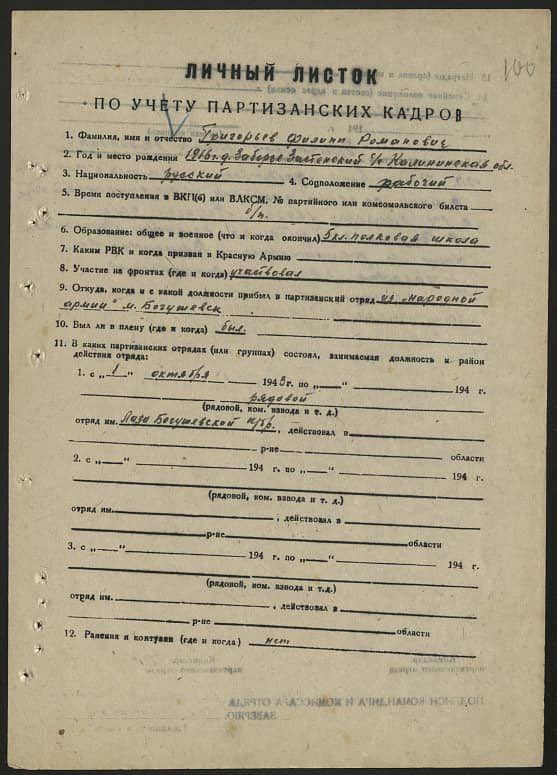 166
ЛИЧНЫЙ ЛИСТОК
ПО УЧЕТУ ПАРТИЗАНСКИХ КАДРОВ
1. Фамилия, имя и отчество Григорьев Филипп Романович
2. Год и место рождения 1916г. д. Заборье Застенский с/с Калининская обл.
3. Национальность русский 4. Соцположение рабочий
5. Время поступления в ВКП(б) или ВЛКСМ, № партийного или комсомольского билета
б/п.
6. Образование: общее и военное (что и когда окончил) 5 кл. полковая школа
7. Каким РВК и когда призван в Красную Армию
8. Участие на фронтах (где и когда) участвовал
9. Откуда, когда и с какой должности прибыл в партизанский отряд из „народной
армии" м. Богушевск
10. Был ли в плену (где и когда) был.
11. В каких партизанских отрядах (или группах) состоял, занимаемая должность и район
действия отряда:
1. с „1" октября 1943г. по „ " 194 г.
рядовой
(рядовой, ком. взвода и т. д.)
отряд им. Лазо Богушевской п/бр., действовал в
р-не области
2. с „ " 194 г. по „ " 194 г.
(рядовой, ком. взвода и т. д.)
отряд им. , действовал в
р-не области
3. с „ " 194 г. по „ " 194 г.
(рядовой, ком. взвода и т.д.)
отряд им. , действовал в
р-не области
12. Ранения и контузии (где и когда) нет
ПОДПИСИ КОМАНДИРА И КОМИССАРА ОТРЯДА
ЗАВЕРЯЮ.